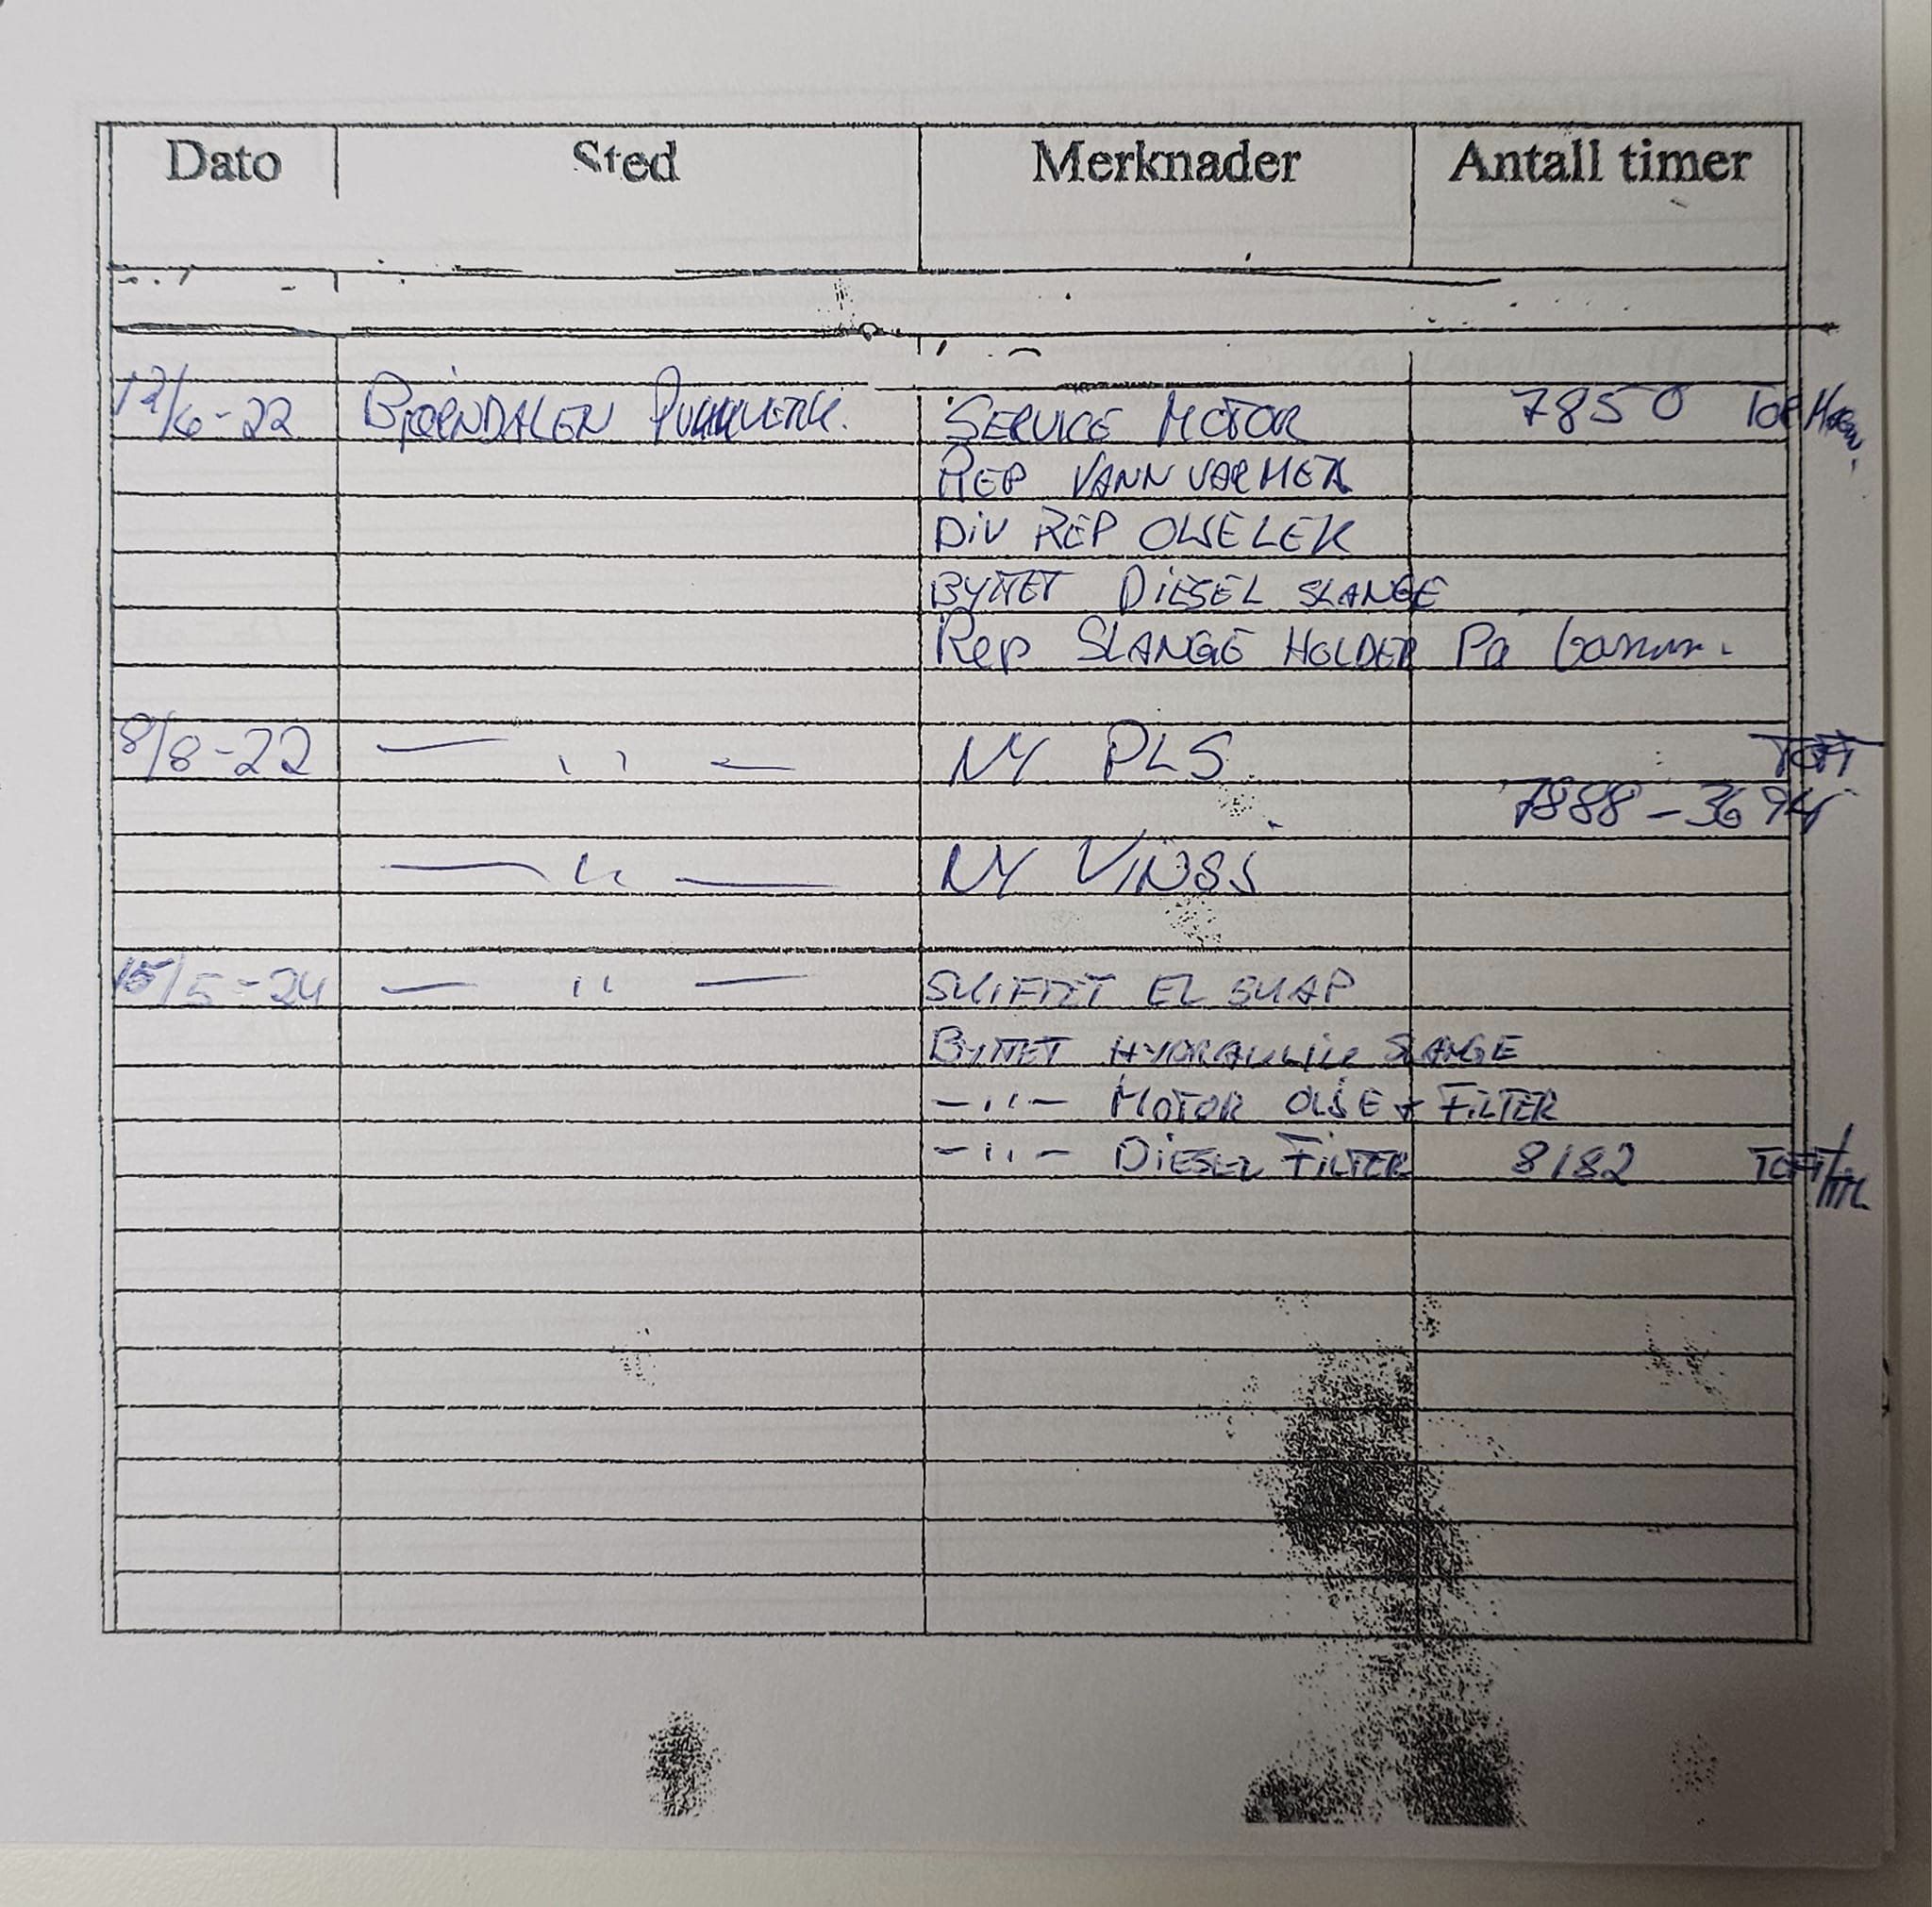 Dato Sted Merknader Antall timer
/6-22 BJØRNDALEN PUKKVERK. SERVICE MOTOR 7850 TOR
REP VANNVARMER
DIV REP OLJELEK
BYTTET DIESEL SLANGE
Rep SLANGE HOLDER På
8/8-22 — '' — NY PLS. TOFT
7888-3694
— '' — NY VINSJ
15/5-24 — '' — SKIFTET EL SKAP
BYTTET HYDRAULIK SLANGE
-''- MOTOR OLJE + FILTER
-''- DIESEL FILTER 8182 TOFT/